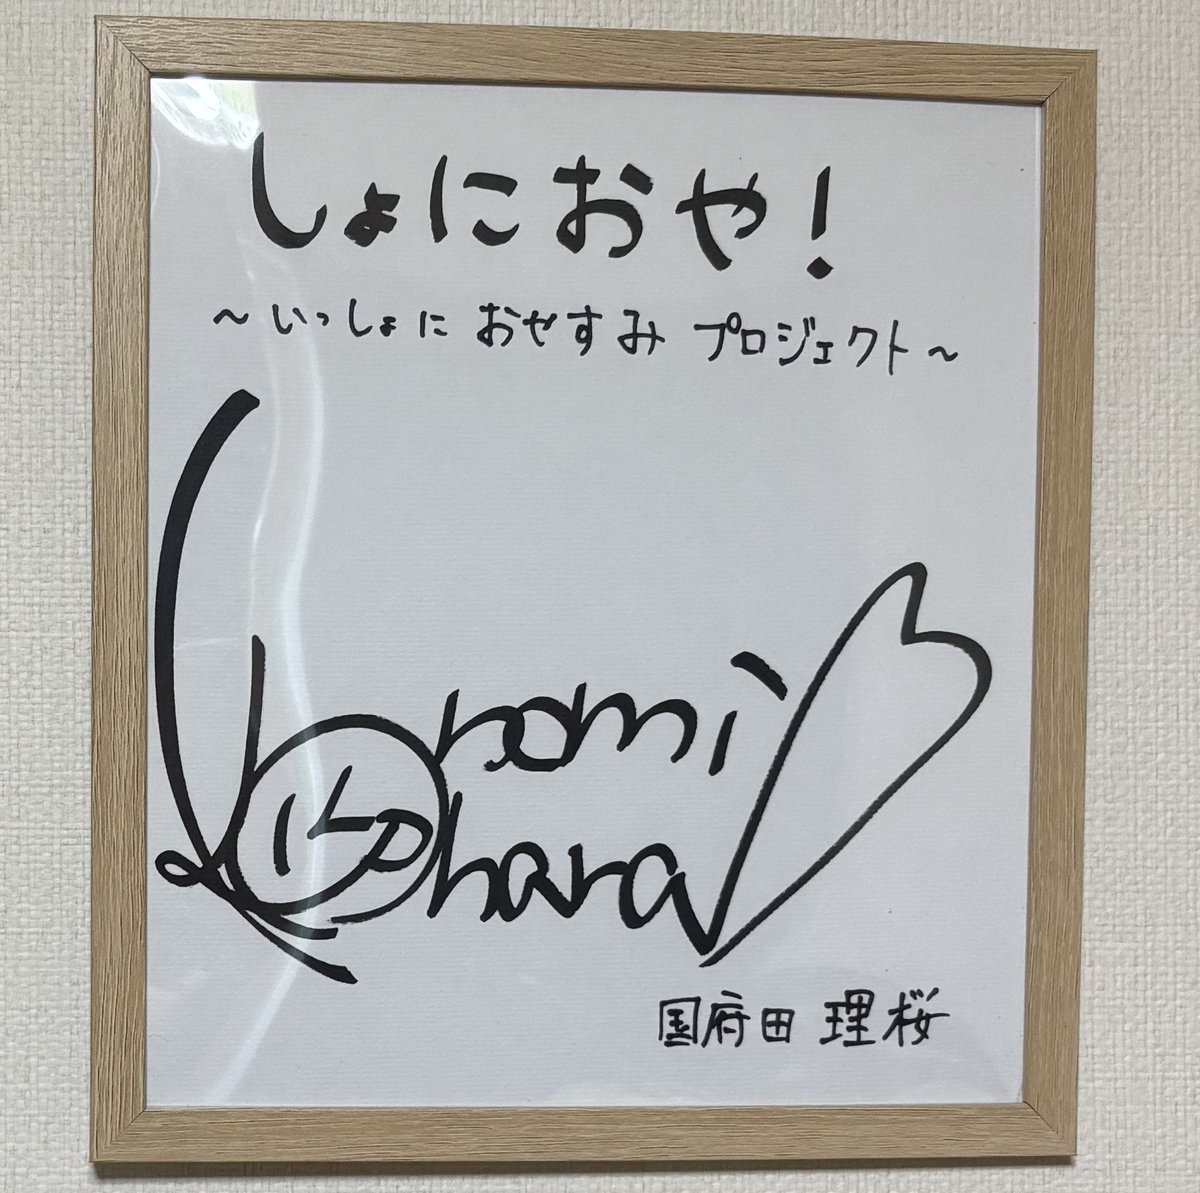 しょにおや!
〜いっしょに おやすみ プロジェクト〜
Konomi
Kohara
国府田 理桜